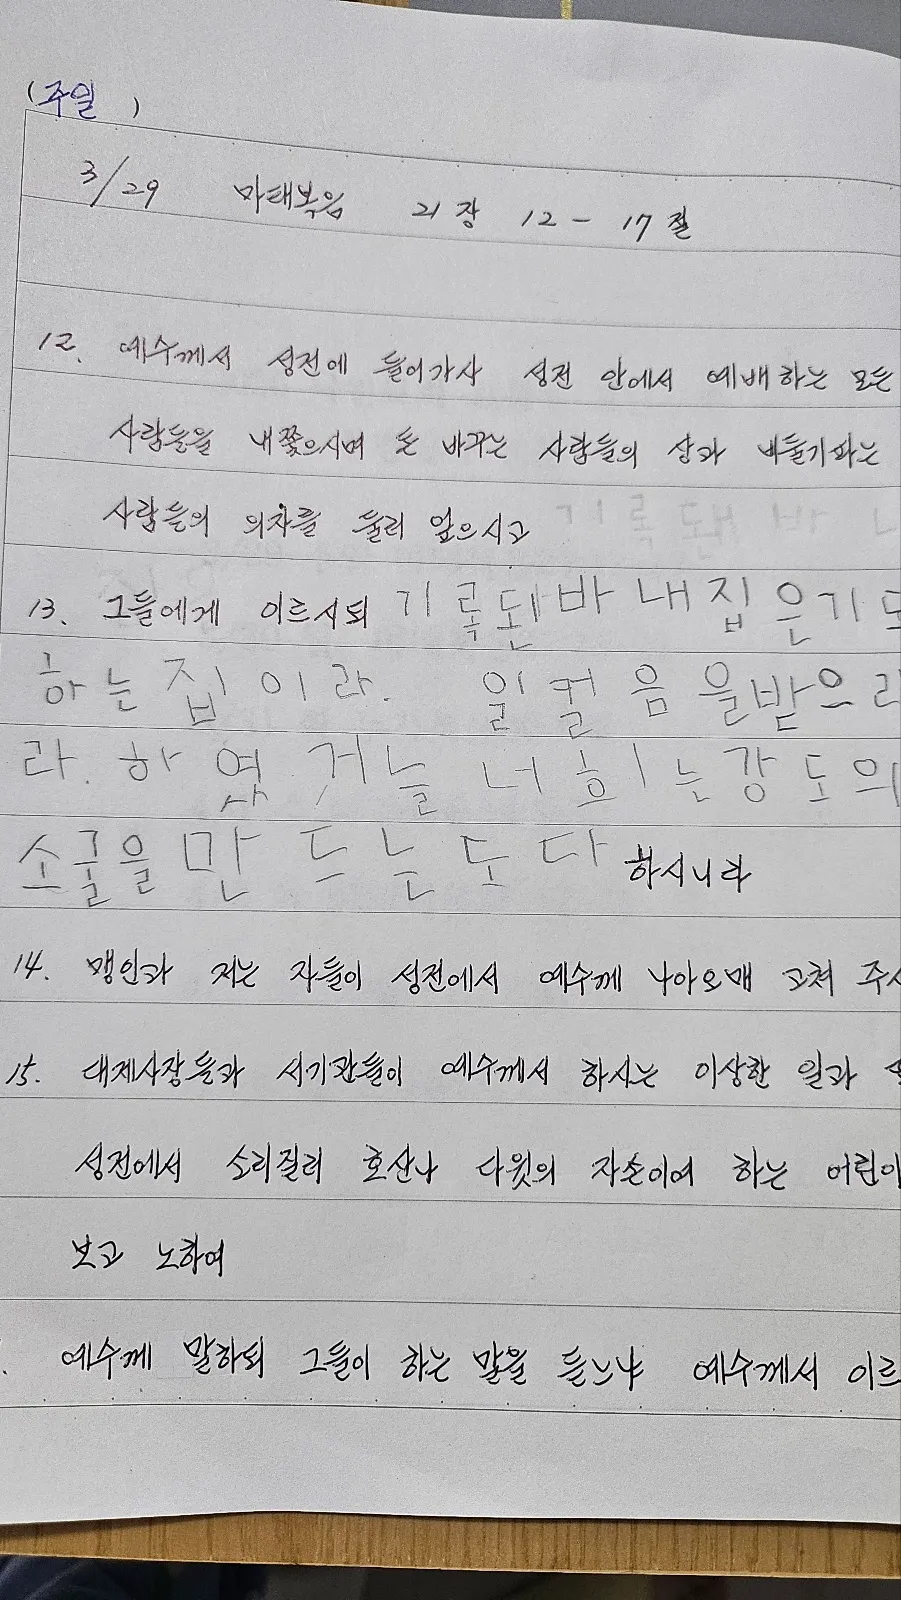 (주일 )
3/29 마태복음 21장 12 - 17절
12. 예수께서 성전에 들어가사 성전 안에서 예배하는 모든
사람들을 내쫓으시며 돈 바꾸는 사람들의 상과 비둘기파는
사람들의 의자를 둘러 엎으시고
13. 그들에게 이르시되 기록된바 내집은기도
하는집이라. 일컬음을받으리
라. 하였거늘 너희는강도의
소굴을만드는도다 하시니라
14. 맹인과 저는 자들이 성전에서 예수께 나아오매 고쳐 주시
15. 대제사장들과 서기관들이 예수께서 하시는 이상한 일과
성전에서 소리질러 호산나 다윗의 자손이여 하는 어린이
보고 노하여
. 예수께 말하되 그들이 하는 말을 듣느냐 예수께서 이르